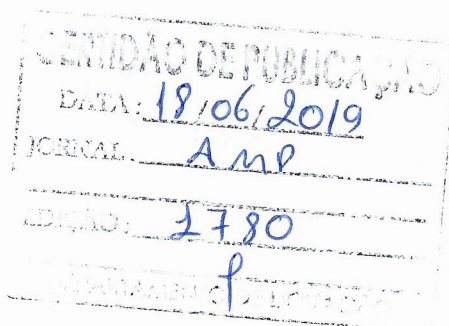 CERTIDÃO DE PUBLICAÇÃO
DATA: 18/06/2019
JORNAL: AMP
EDIÇÃO: 1780